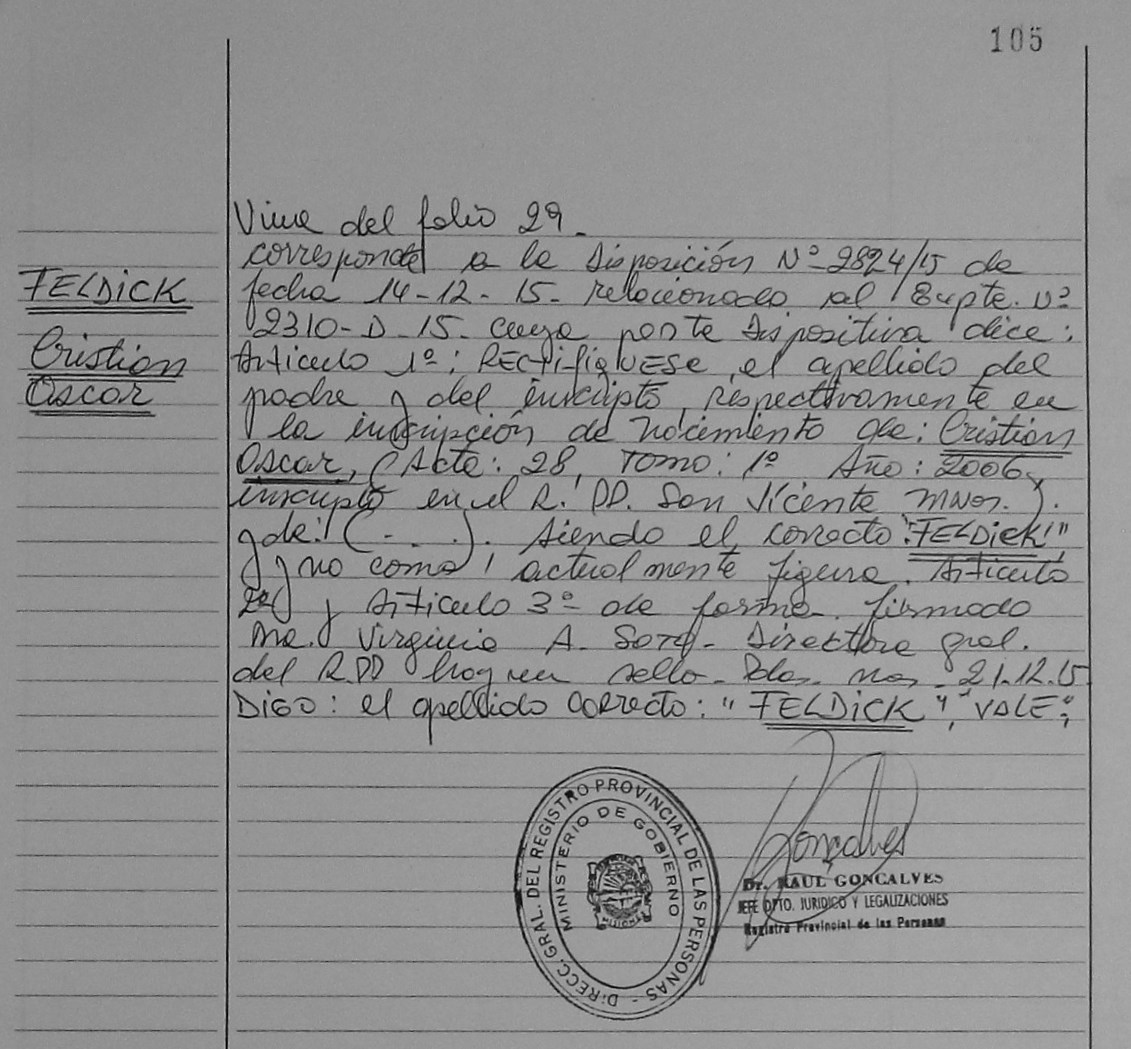 105
FELDICK
Cristian
Oscar
Viene del folio 29.
corresponde a la Disposición Nº-2824/15 de
fecha 14-12-15- relacionado al Expte. Nº
2310-D-15. cuya parte dispositiva dice:
Articulo 1º: RECTIFIQUESE, el apellido del
padre y del inscripto, respectivamente en
la inscripción de nacimiento de: Cristian
Oscar, (Acta: 28, Tomo: 1º Año: 2006,
inscripto en el R. PP. San Vicente Mnes.).
y de: (- . . .). siendo el correcto: "FELDICK"
y no como actualmente figura. Articulo
2º y Articulo 3º de forma. firmado
Ma. Virginia A. Soto- Directora gral.
del R.PP hay un sello- Pdas. mnes- 21.12.15
DIGO: el apellido correcto: "FELDICK", VALE;
DIRECC. GRAL. DEL REGISTRO PROVINCIAL DE LAS PERSONAS -
MINISTERIO DE GOBIERNO
MISIONES
Goncalves
Dr. RAUL GONCALVES
JEFE DPTO. JURIDICO Y LEGALIZACIONES
Registro Provincial de las Personas